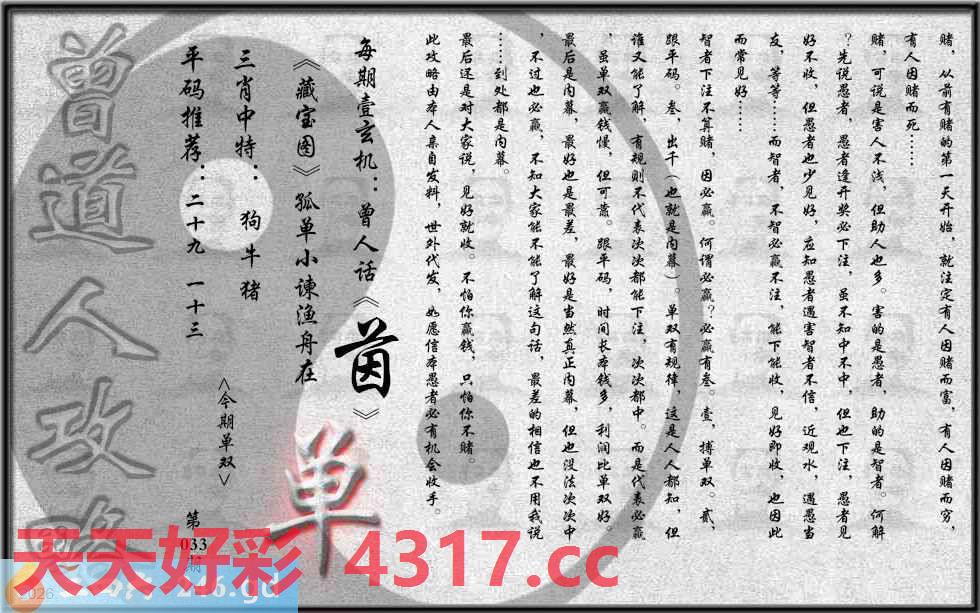 赌，从前有赌的第一天开始，就注定有人因赌而富，有人因赌而穷，
有人因赌而死……
赌，可说是害人不浅，但助人也多。害的是愚者，助的是智者。何解
？先说愚者，愚者逢开奖必下注，虽不知中不中，但也下注，愚者见
好不收，但愚者也少见好，应知愚者遇害智者不信，近观水，遇愚当
友，等等……而智者，不智必赢不注，能下能收，见好即收，也因此
而常见好……
智者下注不算赌，因必赢。何谓必赢？必赢有叁。壹，搏单双。贰，
跟平码。叁，出千（也就是内幕）。单双有规律，这是人人都知，但
谁又能了解，有规则不代表次次都能下注，次次都中。而是代表必赢
，虽单双赢钱慢，但可蓄。跟平码，时间长本钱多，利润比单双好。
最后是内幕，最好也是最差，最好是当然真正内幕，但也没法次次中
，不过也必赢，不知大家能不能了解这句话，最差的相信也不用我说
……到处都是内幕。
最后还是对大家说，见好就收。不怕你赢钱，只怕你不赌。
此攻略由本人亲自发料，世外代发，如愿信本愚者必有机会收手。
每期壹玄机：曾人话《茵》
《藏宝图》孤单小谏渔舟在
三肖中特：狗牛猪
平码推荐：二十九 一十三
<今期单双>
单
第
033
期
曾道人攻略
天天好彩 4317.cc
246.gd
2026